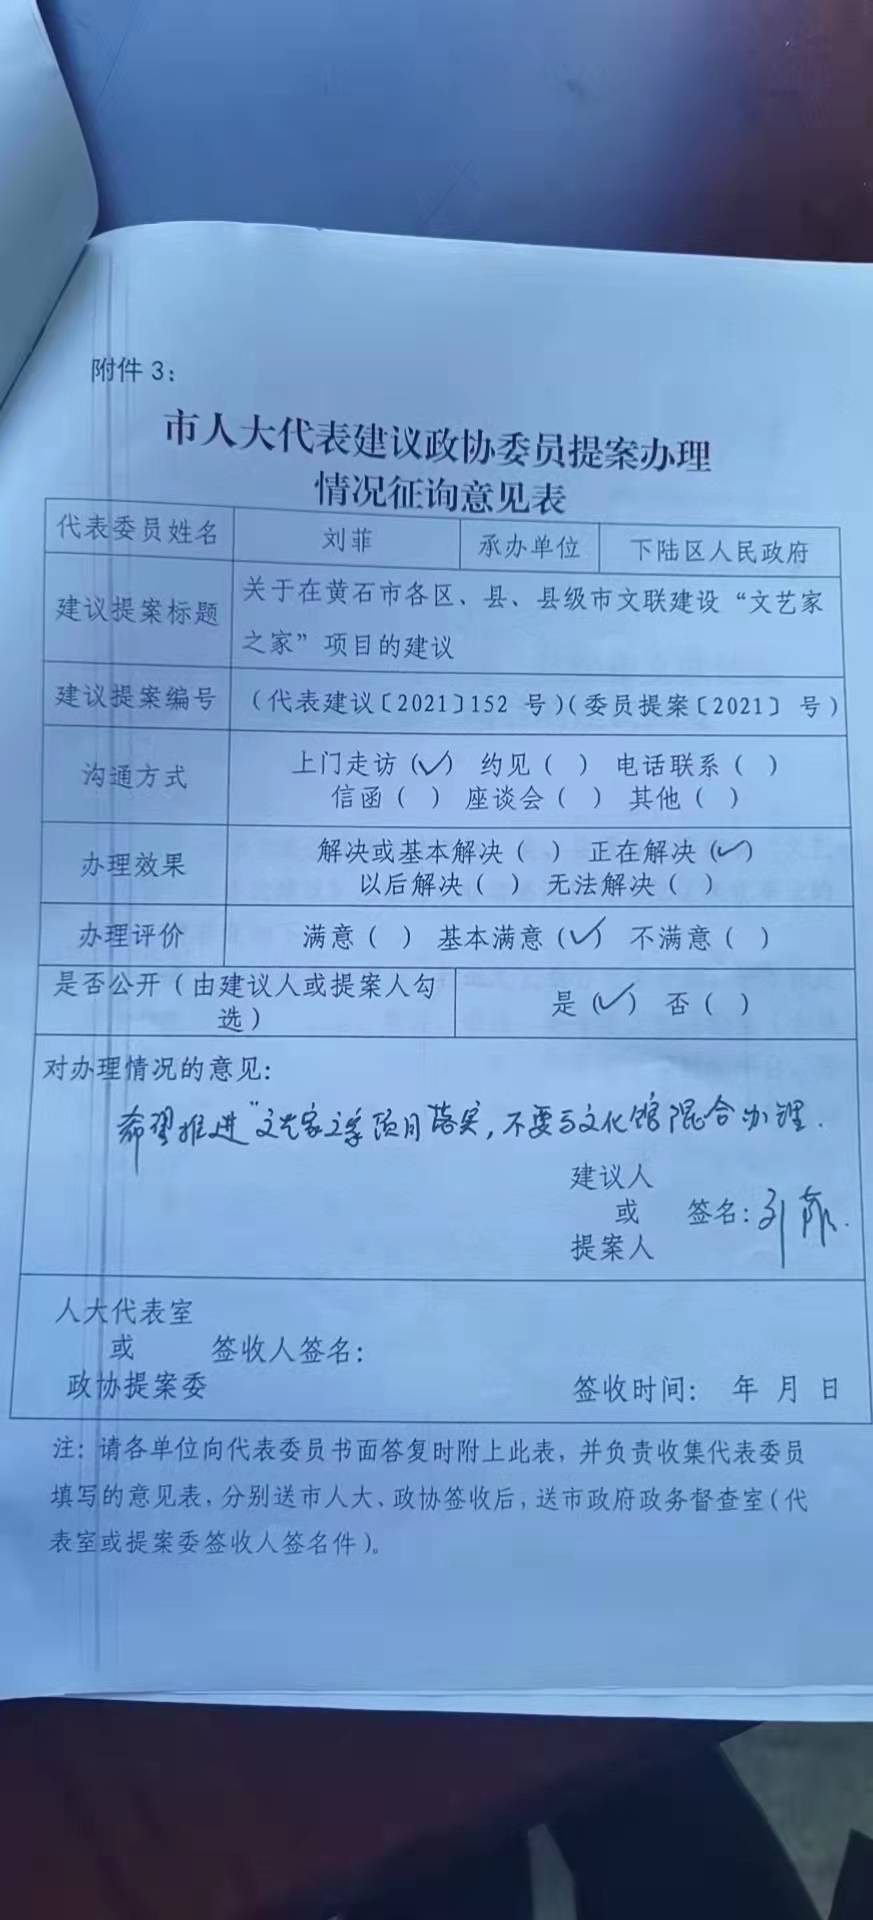 附件 3：
市人大代表建议政协委员提案办理
情况征询意见表
代表委员姓名 刘菲 承办单位 下陆区人民政府
建议提案标题 关于在黄石市各区、县、县级市文联建设“文艺家
之家”项目的建议
建议提案编号 （代表建议〔2021〕152 号）（委员提案〔2021〕 号）
沟通方式 上门走访（✓） 约见（ ） 电话联系（ ）
信函（ ） 座谈会（ ） 其他（ ）
办理效果 解决或基本解决（ ） 正在解决（✓）
以后解决（ ） 无法解决（ ）
办理评价 满意（ ） 基本满意（✓） 不满意（ ）
是否公开（由建议人或提案人勾
选） 是（✓） 否（ ）
对办理情况的意见：
希望推进“文艺家之家项目落实，不要与文化馆混合办理.
建议人
或 签名：刘菲.
提案人
人大代表室
或 签收人签名：
政协提案委 签收时间： 年 月 日
注：请各单位向代表委员书面答复时附上此表，并负责收集代表委员
填写的意见表，分别送市人大、政协签收后，送市政府政务督查室（代
表室或提案委签收人签名件）。